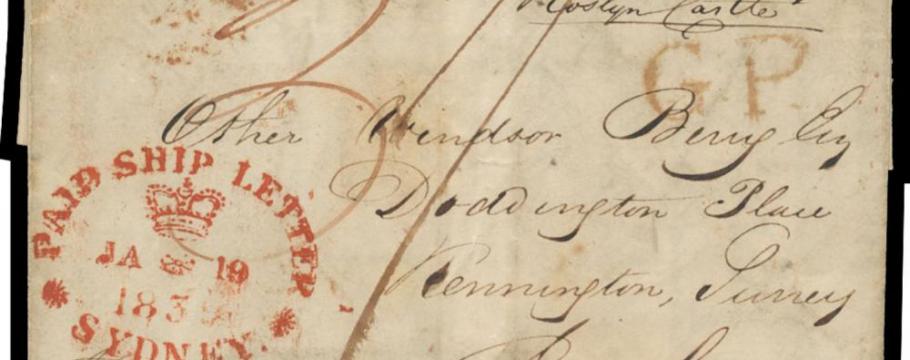 Roslyn Castle
G.P.
Other Windsor Berry Esq
Doddington Place
Kennington, Surrey
PAID SHIP LETTER
JA 19
SYDNEY